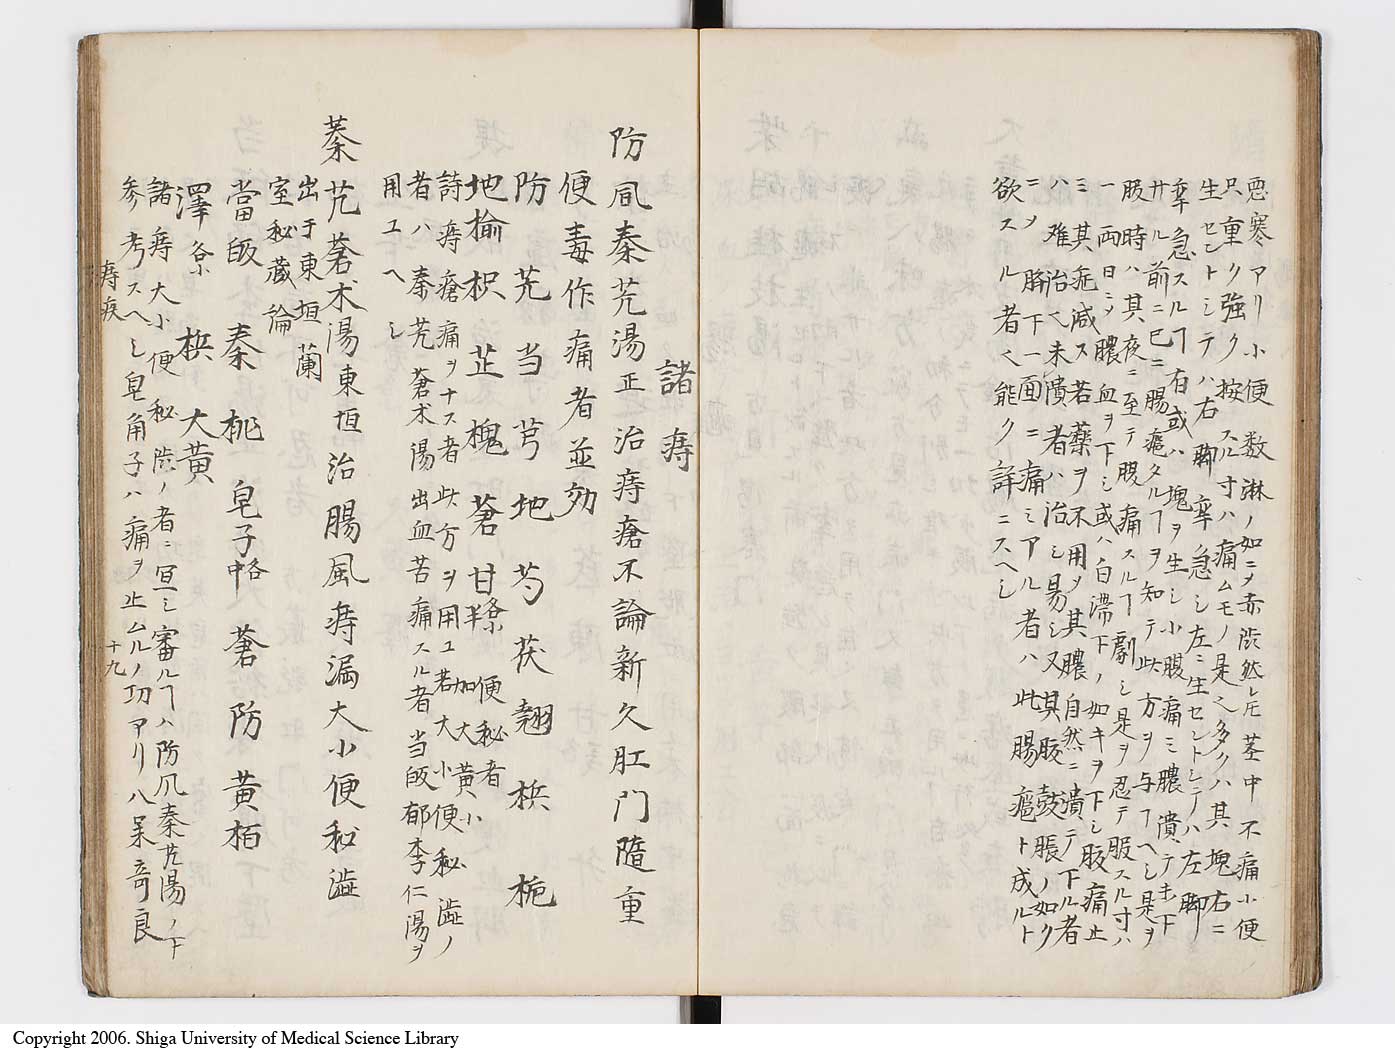 悪寒アリ小便数淋ノ如ニメ赤渋然レ𪜈茎中不痛小便
只重ク強ク按スル寸ハ痛ムモノ是也多クハ其塊右ニ
生セントシテハ右脚攣急シ左ニ生セントシテハ左脚
攣急スルヿ有或ハ塊ヲ生シ小腹痛ミ膿潰テ未下
サル前ニ已ニ腸癰タルヿヲ知テ此方ヲ与ヿヘシ是ヲ
服時ハ其夜ニ至テ腹痛スルヿ劇シ是ヲ忍テ服スル寸ハ
一両日ニメ膿血ヲ下シ或ハ白滞下ノ如キヲ下シ腹痛止
ミ其症減ス若薬ヲ不用メ其膿自然ニ潰テ下ル者
ハ難治也未潰者ハ治シ易シ又其腹鼓脹ノ如ク
ニメ臍下一面ニ痛ミアル者ハ此腸癰ト成ルト
欲スル者也能ク詳ニスヘシ
諸痔
防風秦艽湯正治痔瘡不論新久肛門墜重
便毒作痛者並効
防艽当芎地芍茯翹梹梔
地榆枳芷槐蒼甘半各小便秘者加大黄小
諸痔瘡痛ヲナス者此方ヲ用ユ若大小便秘澁ノ
者ハ秦艽蒼朮湯出血苦痛スル者当皈郁李仁湯ヲ
用ユヘシ
秦艽蒼朮湯東垣治腸風痔漏大小便和澁
出于東垣蘭
室秘蔵論
當皈秦桃皂子各中蒼防黄柏
澤各小梹大黄
諸痔大小便秘渋ノ者ニ宜シ審ルヿハ防凨秦艽湯ノ下
参考スヘシ皂角子ハ痛ヲ止ムルノ功アリ八呆竒良
痔疾
十九
Copyright 2006. Shiga University of Medical Science Library